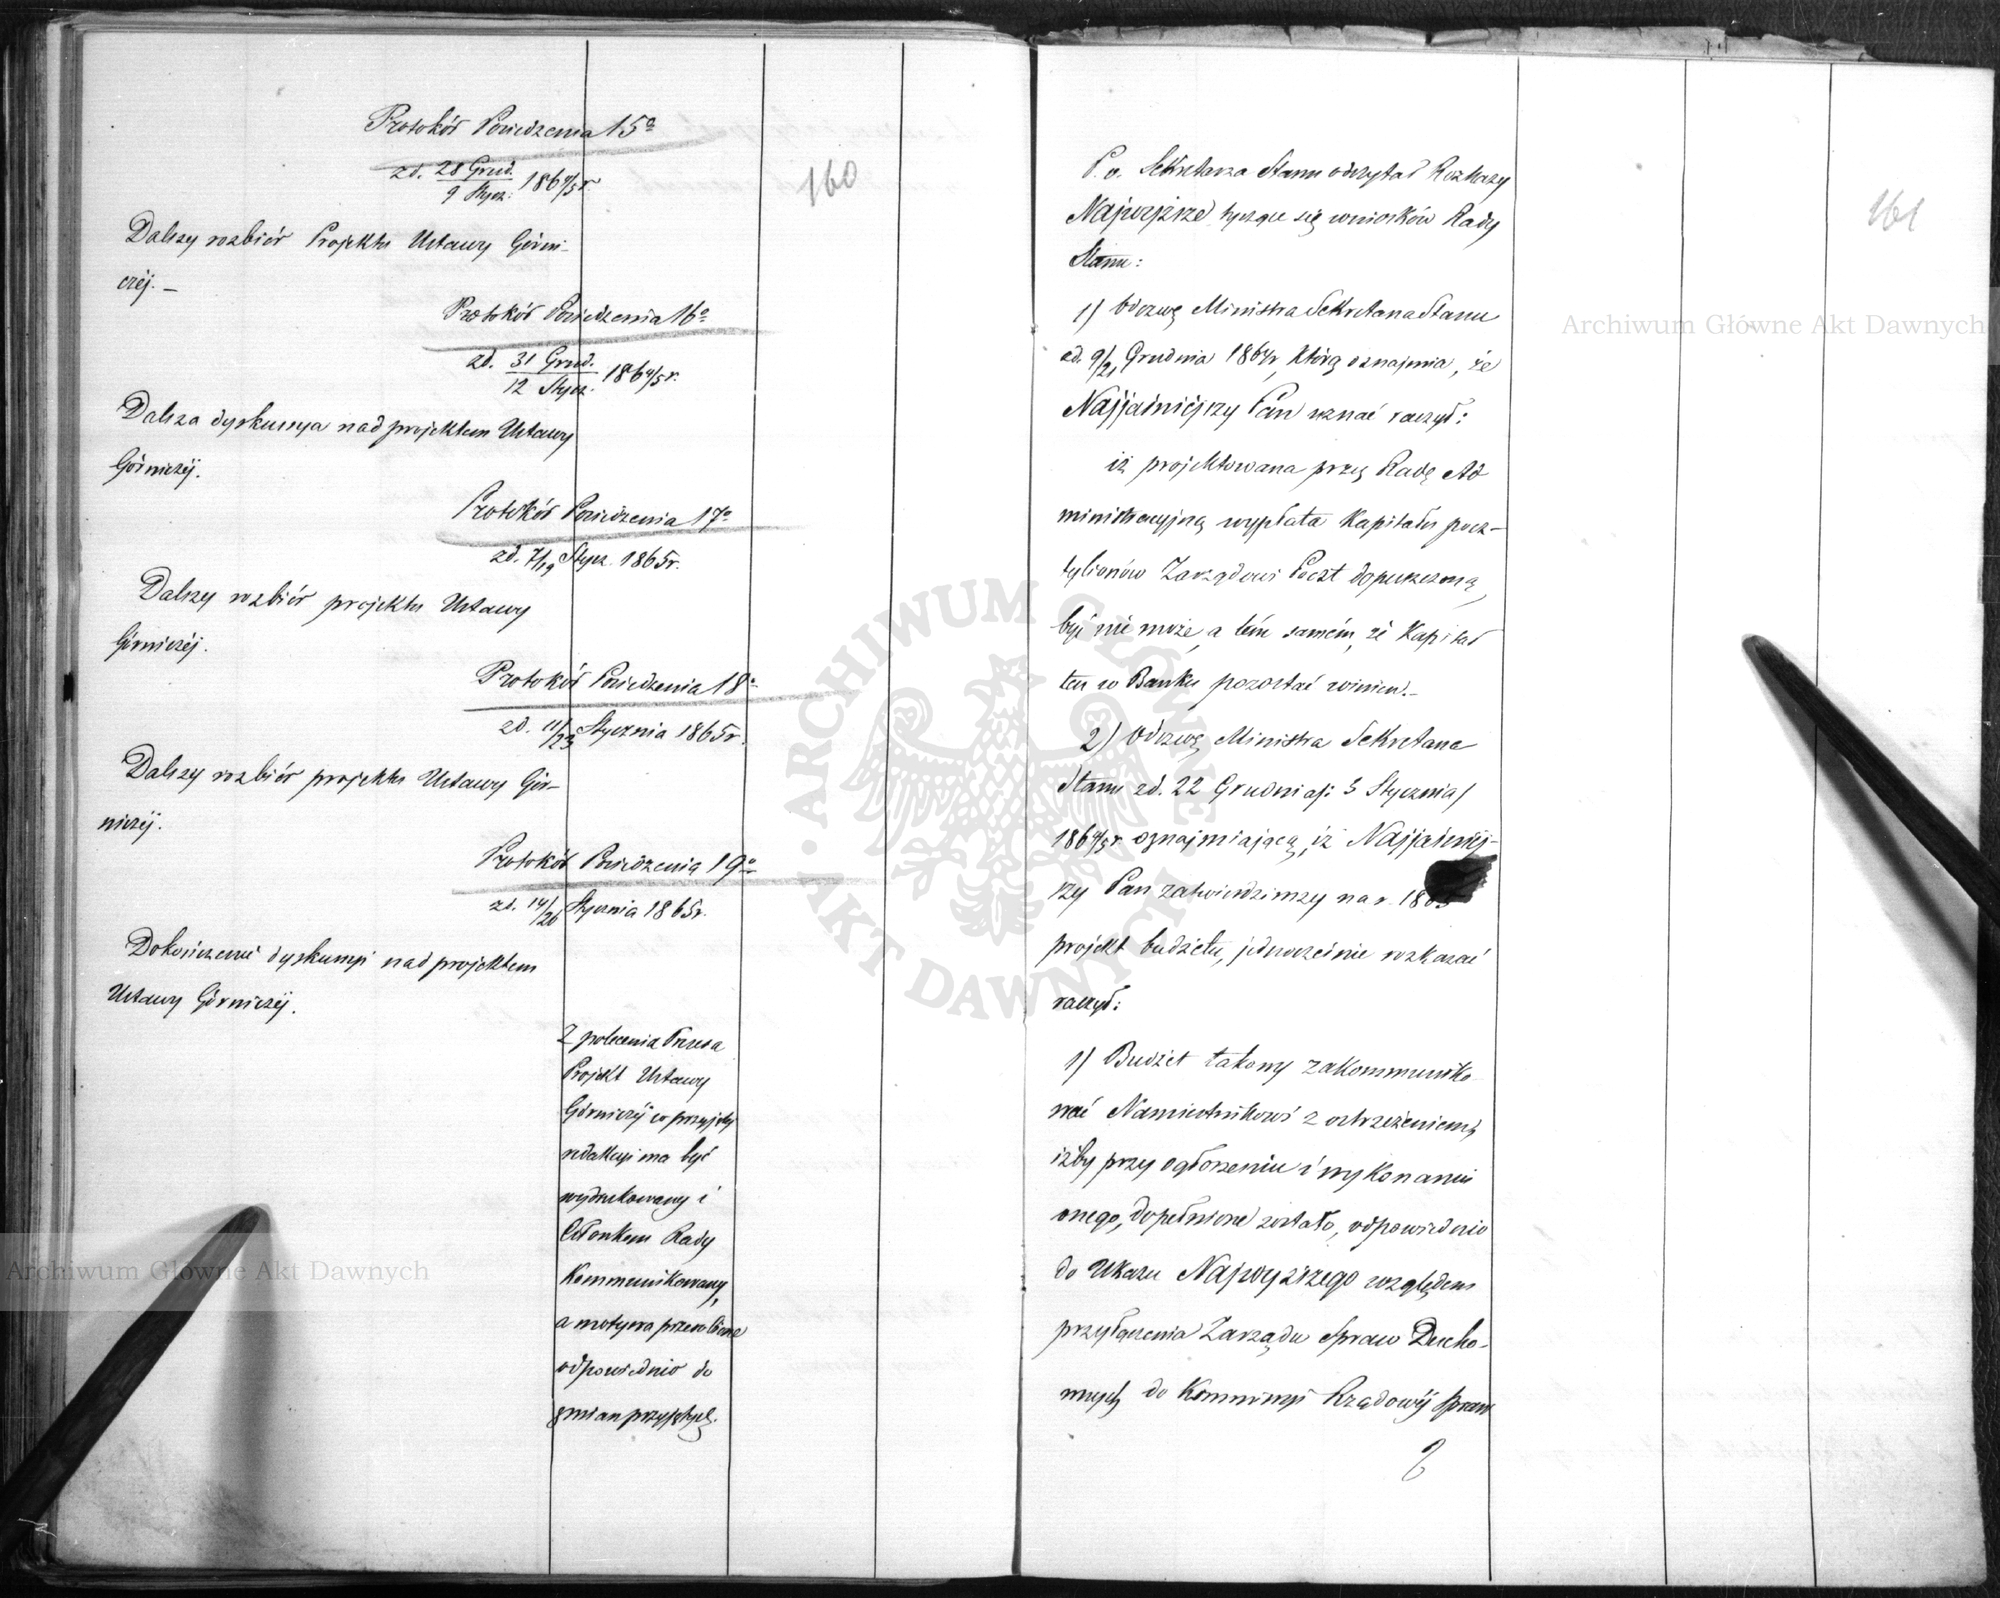 Protokół Posiedzenia 15º
zd. 28 Grud./9 Stycz. 1864/5 r.
160
Dalszy rozbiór Projektu Ustawy Górni-
czéj. –
Protokół Posiedzenia 16º
zd. 31 Grud./12 Stycz. 1864/5 r.
Dalsza dyskussya nad projektem Ustawy
Górniczéj.
Protokół Posiedzenia 17º
zd. 7/19 Stycz. 1865 r.
Dalszy rozbiór projektu Ustawy
Górniczéj.
Protokół Posiedzenia 18º
zd. 11/23 Stycznia 1865 r.
Dalszy rozbiór projektu Ustawy Gór-
niczéj.
Protokół Posiedzenia 19º
zd. 14/26 Stycznia 1865 r.
Dokończenie dyskussyi nad projektem
Ustawy Górniczéj.
Z polecenia Prezesa
Projekt Ustawy
Górniczéj co przyjętej
redakcyi ma być
wydrukowany i
Członkom Rady
kommunikowany,
a motywa przerobione
odpowiednio do
zmian przyjętych.
161
P. o. Sekretarza Stanu odczytał Rozkazy
Najwyższe tyczące się wniosków Rady
Stanu:
1) Odezwę Ministra Sekretarza Stanu
zd. 9/21 Grudnia 1864 r, którą oznajmia, że
Najjaśniejszy Pan uznać raczył:
iż projektowana przez Radę Ad
ministracyjną wypłata kapitału pocz-
tylionów Zarządowi Poczt dopuszczoną
być nie może, a tém samém, że kapitał
ten w Banku pozostać winien. –
2) Odezwę Ministra Sekretarza
Stanu zd. 22 Grudnia/: 3 Stycznia/
1864/5 r. oznajmiającą, iż Najjaśniej-
szy Pan zatwierdziwszy na r. 1865
projekt budżetu, jednocześnie rozkazać
raczył:
1) Budżet takowy zakommuniko-
wać Namiestnikowi z ostrzeżeniem,
iżby przy ogłoszeniu i wykonaniu
onego, dopełnione zostało, odpowiednio
do Ukazu Najwyższego względem
przyłączenia Zarządu Spraw Ducho-
wnych do Kommissyi Rządowéj Spraw
Archiwum Główne Akt Dawnych
Archiwum Główne Akt Dawnych
ARCHIWUM GŁÓWNE AKT DAWNYCH